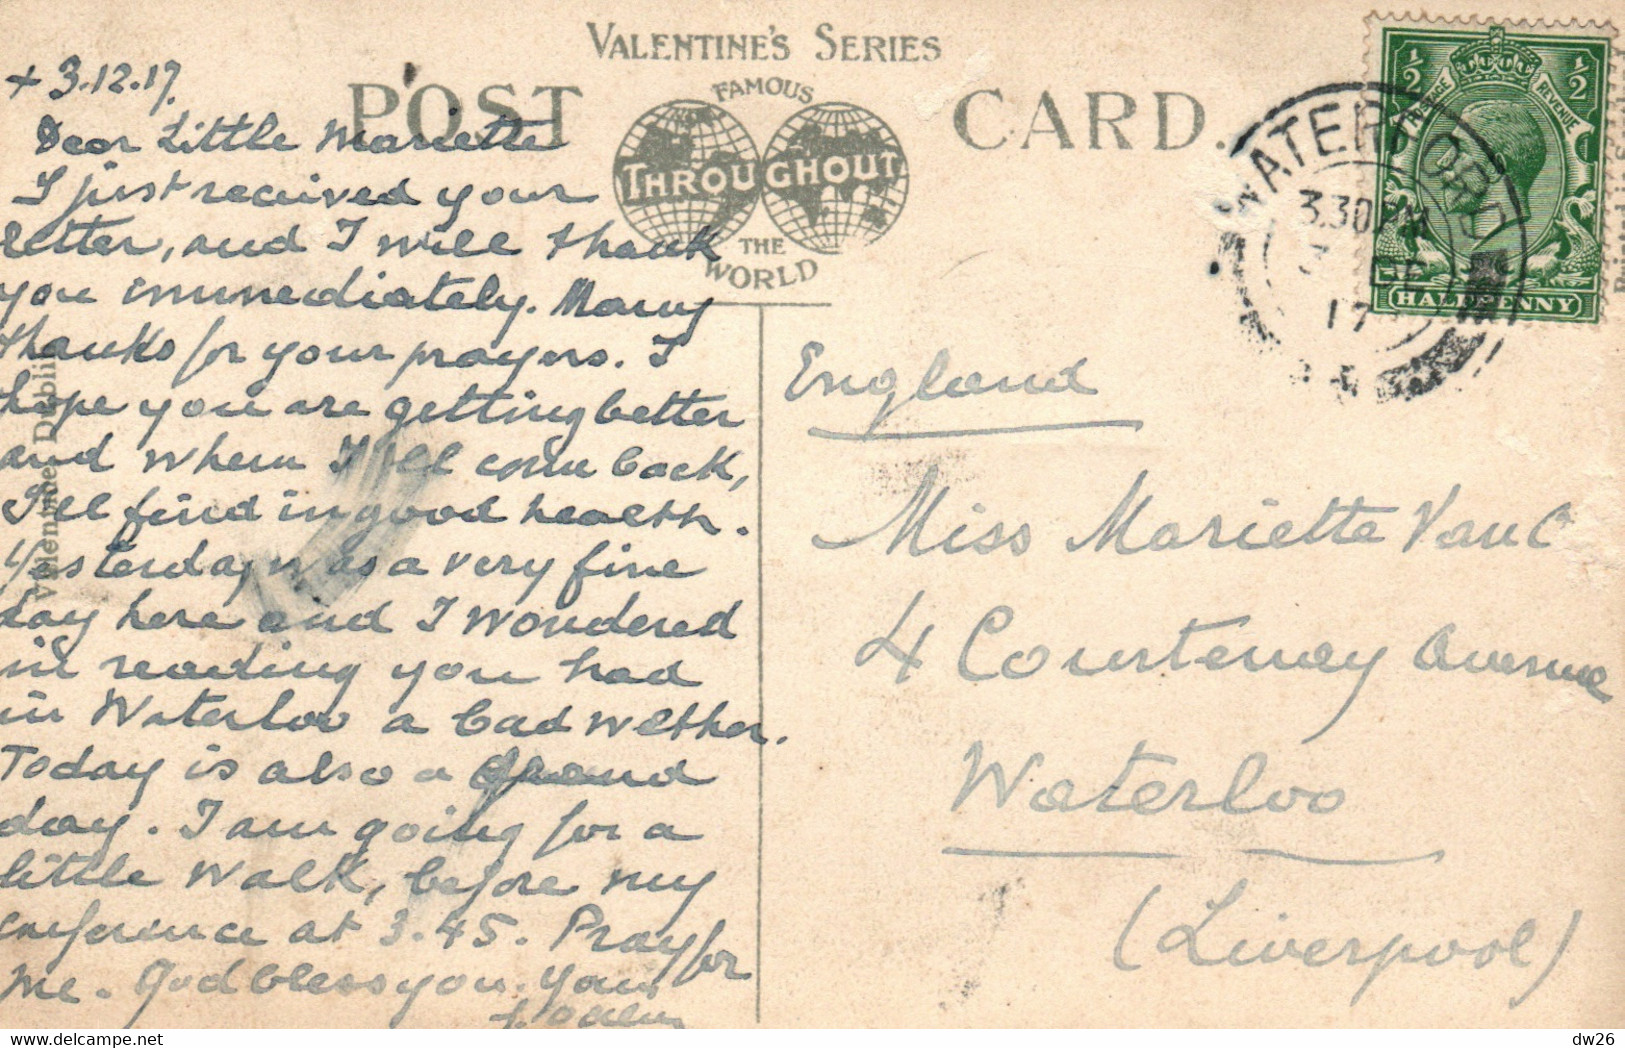 VALENTINE'S SERIES
POST CARD.
FAMOUS
THROUGHOUT
THE
WORLD
+ 3.12.17.
Dear Little Mariette
I just received your
letter, and I will thank
you immediately. Many
thanks for your prayers. I
hope you are getting better
and when I'll come back,
I'll find in good health.
Yesterday was a very fine
day here and I wondered
in reading you had
in Waterloo a bad wether.
Today is also a
day. I am going for a
little walk, before my
conference at 3.45. Pray for
me. God bless you. Your
Valentine Dublin
England
Miss Mariette Van C
4 Courtenay Avenue
Waterloo
(Liverpool)
WATERFORD
3.30 PM
3 DE
17
POSTAGE REVENUE
½ ½
HALFPENNY
dw26